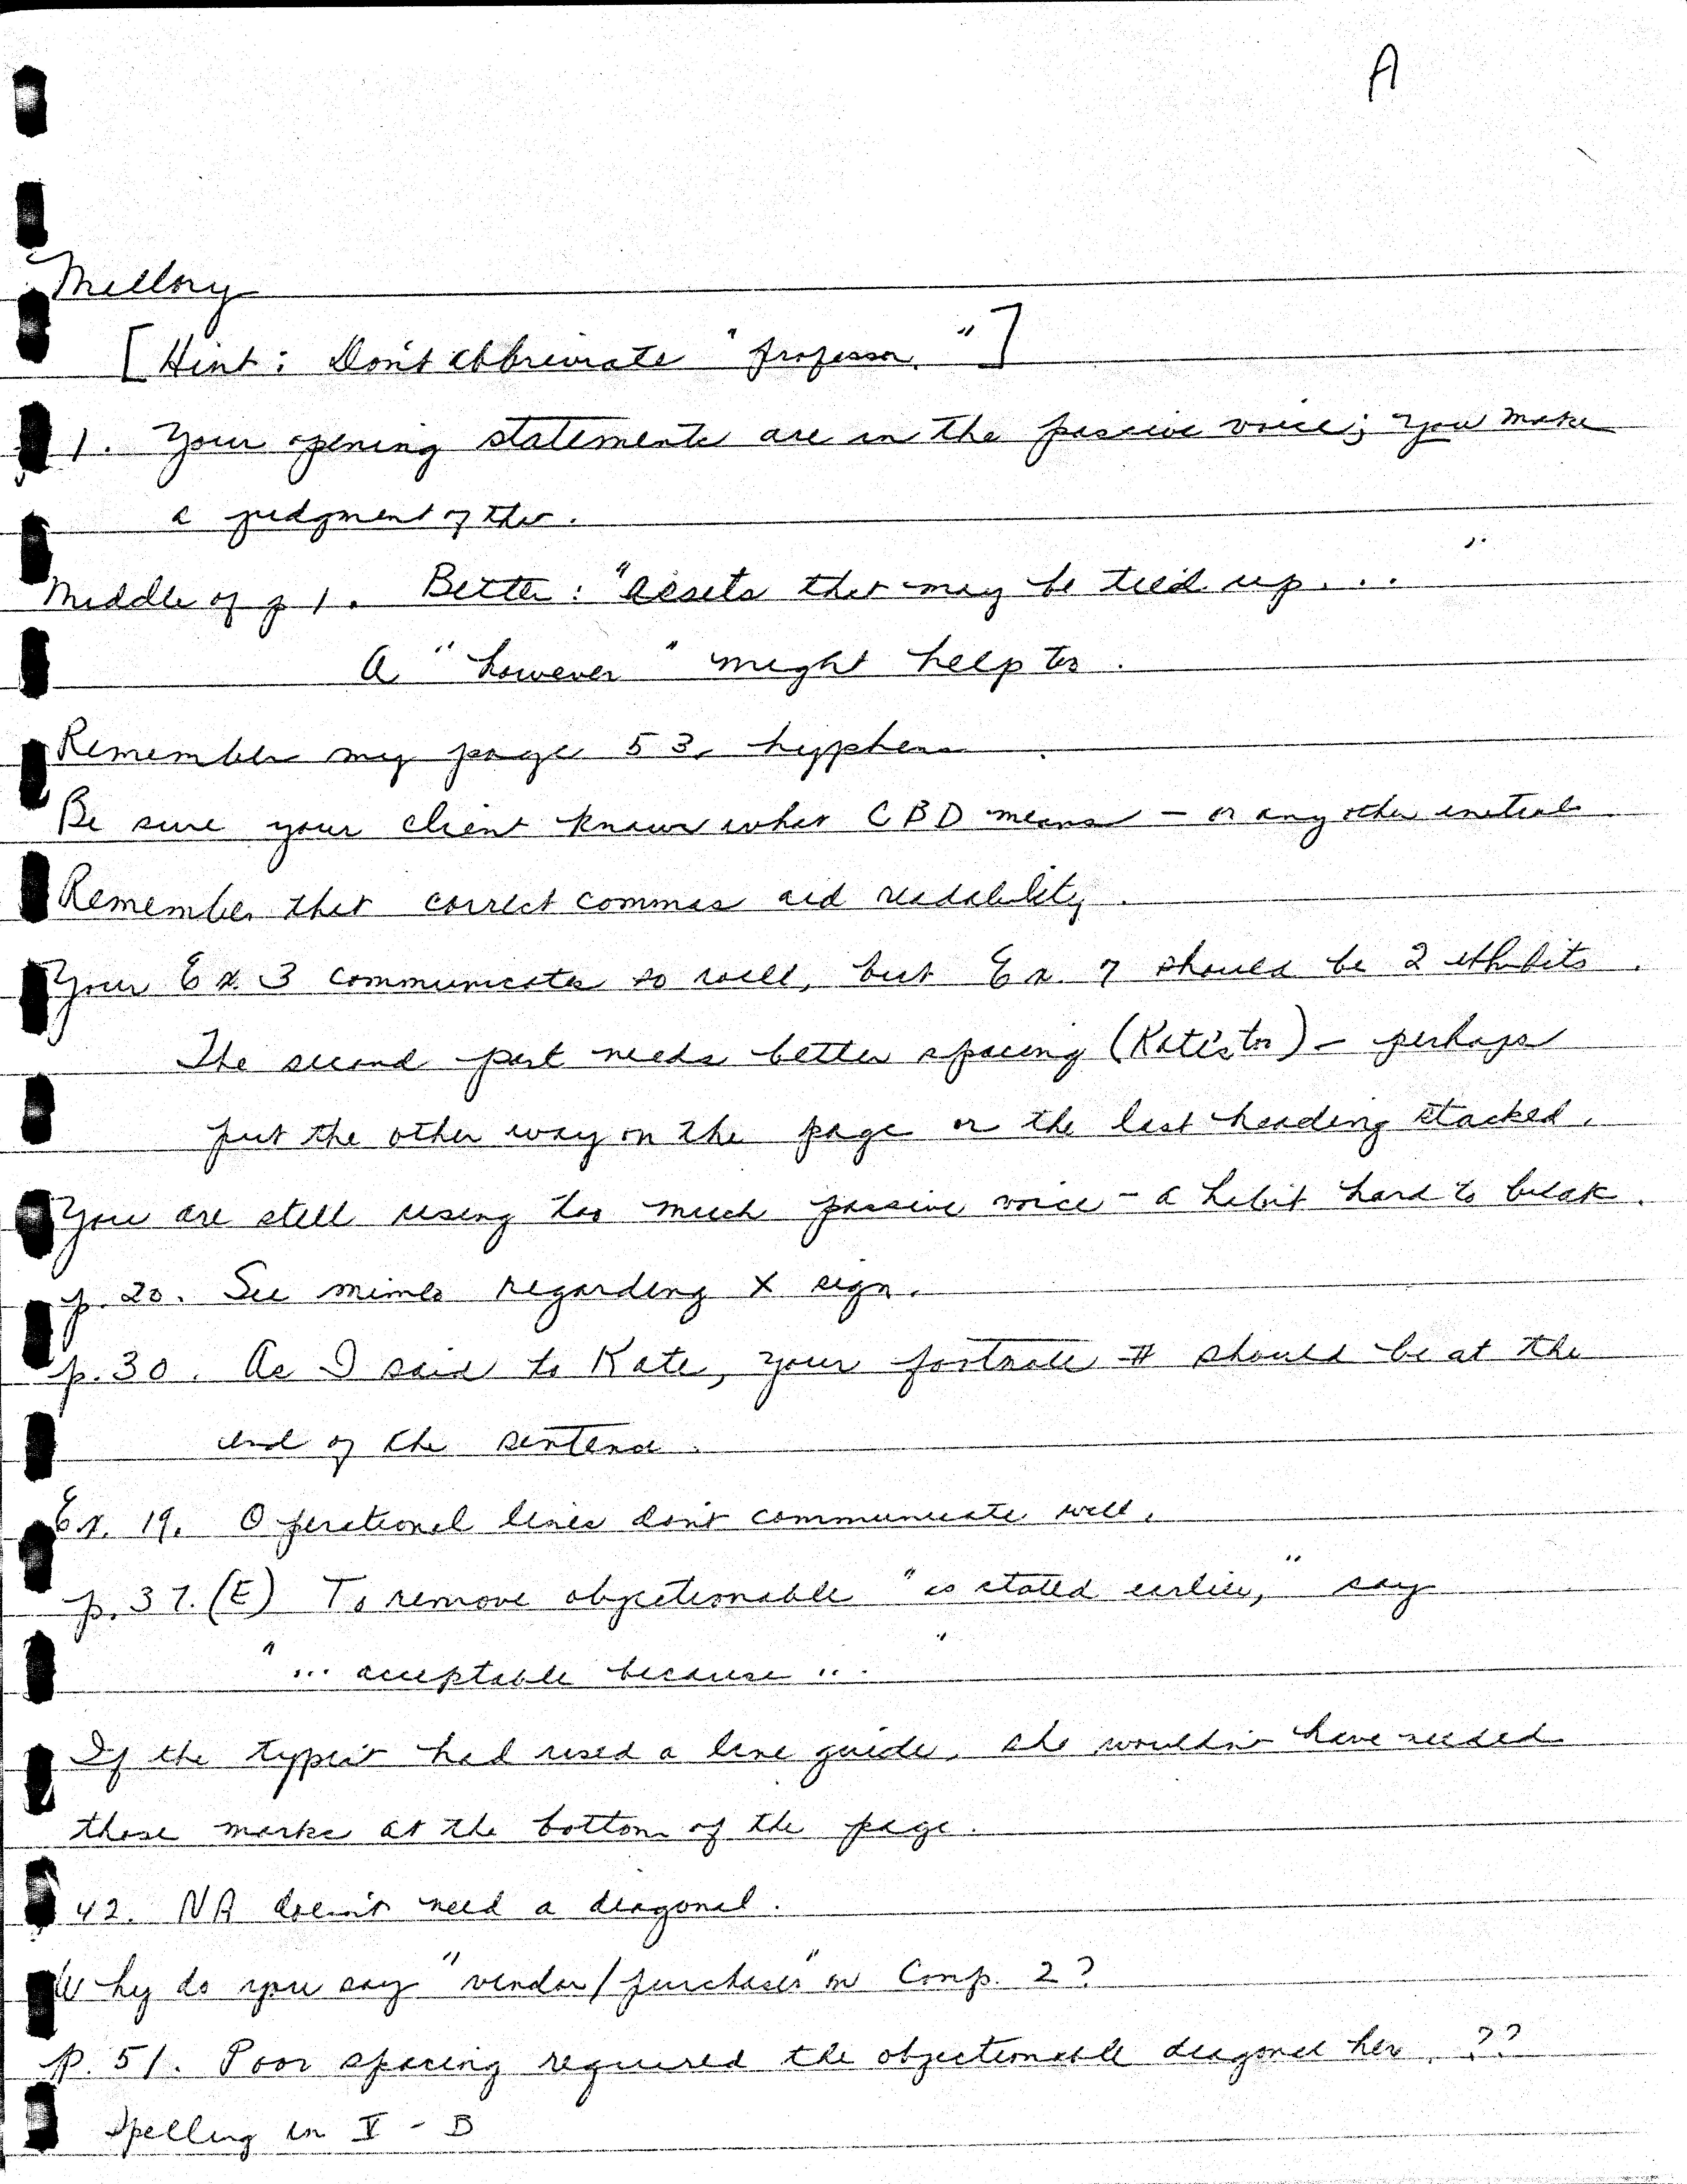 A
Mellory
[Hint: Don't abbreviate "professor."]
1. Your opening statements are in the passive voice; you make
a judgment of this.
Middle of p 1. Better: "assets that may be tied up...".
A "however" might help too.
Remember my page 53, hyphens.
Be sure your client knows what CBD means - or any other initials
Remember that correct commas aid readability.
Your Ex. 3 communicates so well, but Ex. 7 should be 2 exhibits.
The second part needs better spacing (Kate's too) - perhaps
put the other way on the page or the last heading stacked.
You are still using too much passive voice - a habit hard to break.
p. 20. See mimeo regarding X sign.
p. 30. As I said to Kate, your footnote # should be at the
end of the sentence.
Ex. 19. Operational lines don't communicate well.
p. 37. (E) To remove objectionable "as stated earlier," say
"... acceptable because ..."
If the typist had used a line guide, she wouldn't have needed
those marks at the bottom of the page.
42. NA doesn't need a diagonal.
Why do you say "vendor/purchaser" in Comp. 2?
p. 51. Poor spacing required the objectionable diagonal here. ??
Spelling in V - B